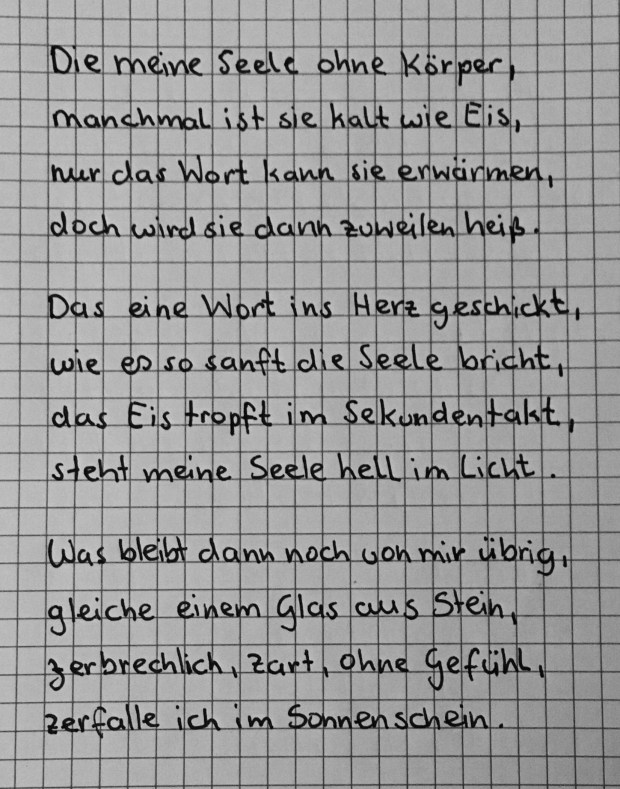 Die meine Seele ohne Körper,
manchmal ist sie kalt wie Eis,
nur das Wort kann sie erwärmen,
doch wird sie dann zuweilen heiß.
Das eine Wort ins Herz geschickt,
wie es so sanft die Seele bricht,
das Eis tropft im Sekundentakt,
steht meine Seele hell im Licht.
Was bleibt dann noch von mir übrig,
gleiche einem Glas aus Stein,
zerbrechlich, zart, ohne Gefühl,
zerfalle ich im Sonnenschein.